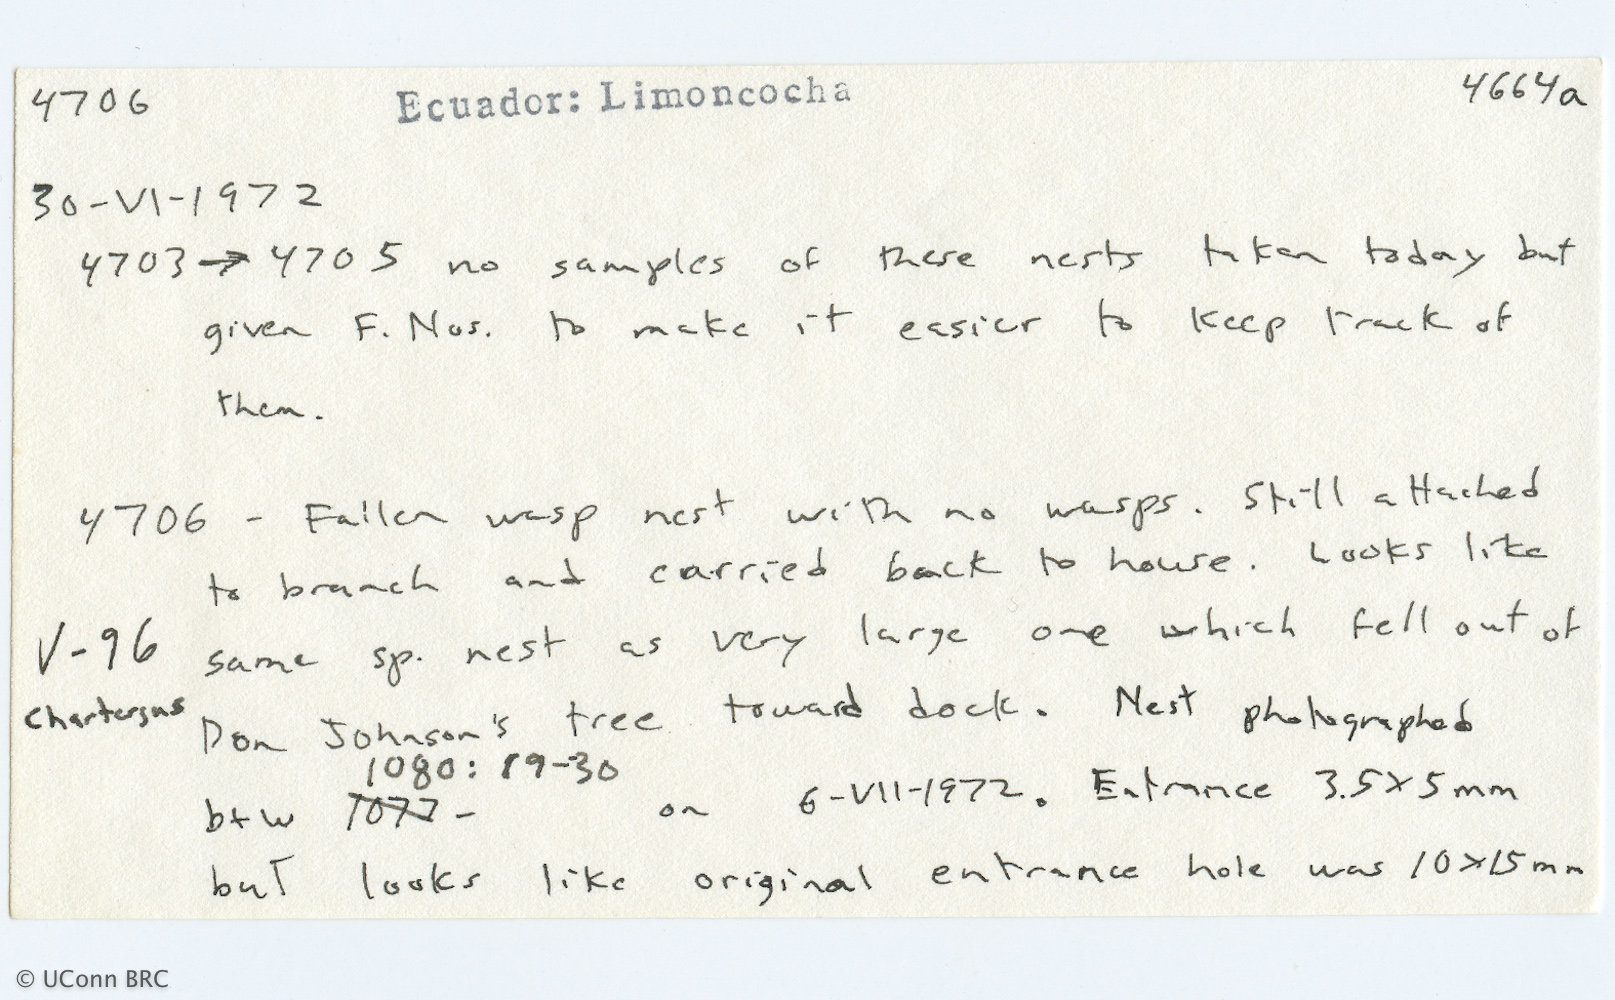 4706 Ecuador: Limoncocha 4664a
30-VI-1972
4703 → 4705 no samples of these nests taken today but
given F. Nos. to make it easier to keep track of
them.
4706 - Fallen wasp nest with no wasps. Still attached
to branch and carried back to house. Looks like
V-96 same sp. nest as very large one which fell out of
Chartergus Don Johnson's tree toward dock. Nest photographed
1080: 19-30
b+w 1077 - on 6-VII-1972. Entrance 3.5 x 5 mm
but looks like original entrance hole was 10 x 15 mm
© UConn BRC